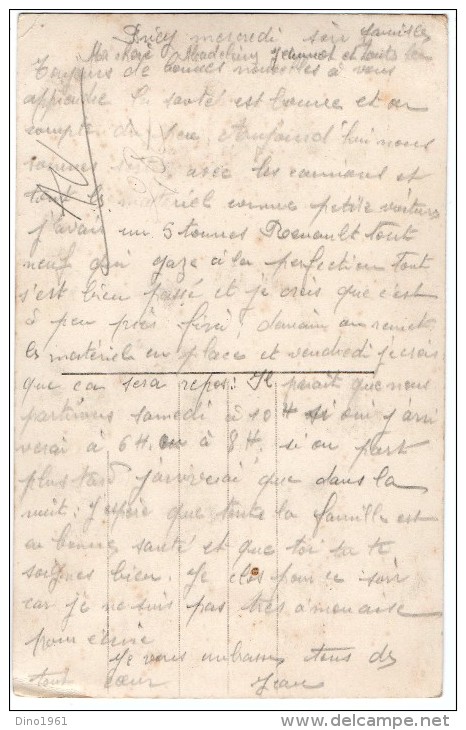 mercredi soir
Ma chère Madeleine Jeannot et toute la famille
Toujours de bonnes nouvelles à vous
apprendre la santé est bonne et on
compte du Aujourd'hui nous
sommes avec les camions et
tout le matériel comme petite voiture
j'avais un 5 tonnes Renault tout
neuf qui gaze à la perfection tout
s'est bien passé et je crois que c'est
à peu près fini, demain on remet
le matériel en place et vendredi je crois
que ca sera repos. Il parait que nous
partirons samedi à 10 H si oui j'arri
verai à 6 H. ou à 8 H. si on part
plus tard j'arriverai que dans la
nuit. J'espère que toute la famille est
en bonne santé et que toi tu te
soignes bien Je clos pour ce soir
car je ne suis pas très à mon aise
pour écrire
Je vous embrasse tous de
tout cœur Jean
Dino1961
delcampe.net